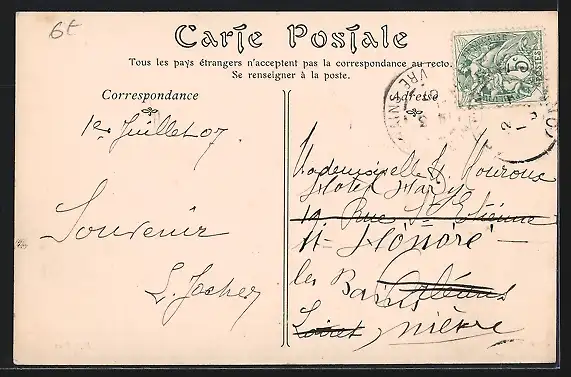 6t
Carte Postale
Tous les pays étrangers n'acceptent pas la correspondance au recto.
Se renseigner à la poste.
Correspondance
Adresse
POSTES
5
1er Juillet 07
Souvenir
Mademoiselle
Hotel
19 Rue St Etienne
St Honoré
les Bains Orléans
Loiret nièvre